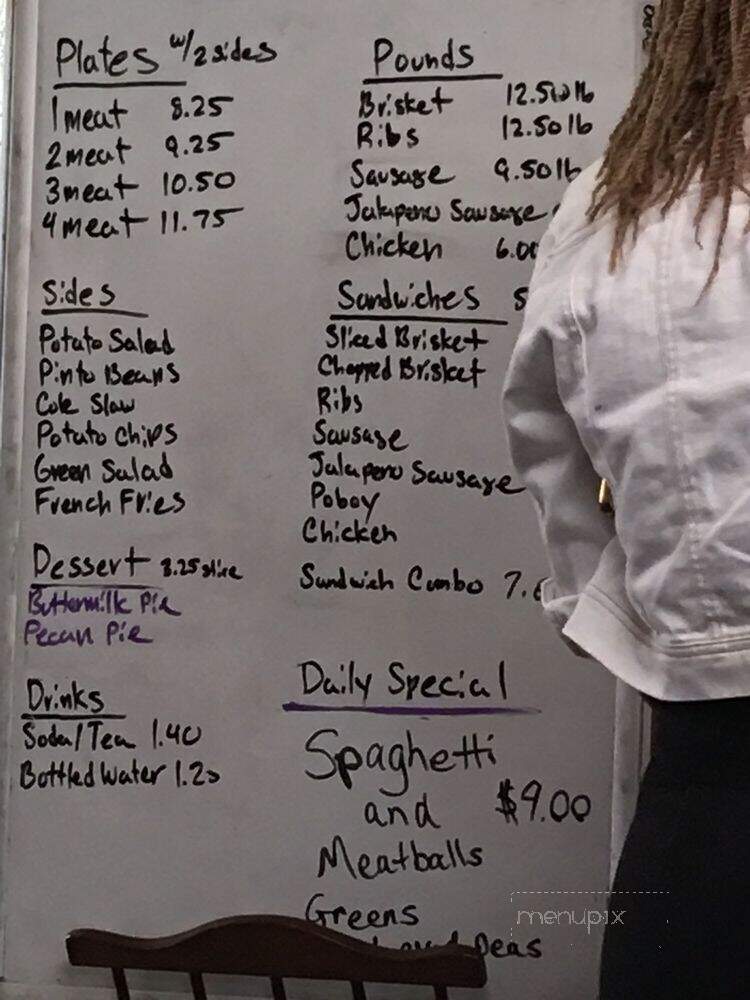 Plates w/2 sides
1 meat 8.25
2 meat 9.25
3 meat 10.50
4 meat 11.75
Sides
Potato Salad
Pinto Beans
Cole Slaw
Potato Chips
Green Salad
French Fries
Dessert 3.25 slice
Buttermilk Pie
Pecan Pie
Drinks
Soda/Tea 1.40
Bottled Water 1.25
Pounds
Brisket 12.50 lb
Ribs 12.50 lb
Sausage 9.50 lb
Jalapeno Sausage
Chicken 6.00
Sandwiches 5
Sliced Brisket
Chopped Brisket
Ribs
Sausage
Jalapeno Sausage
Poboy
Chicken
Sandwich Combo 7.
Daily Special
Spaghetti
and $9.00
Meatballs
Greens
Peas
menupix